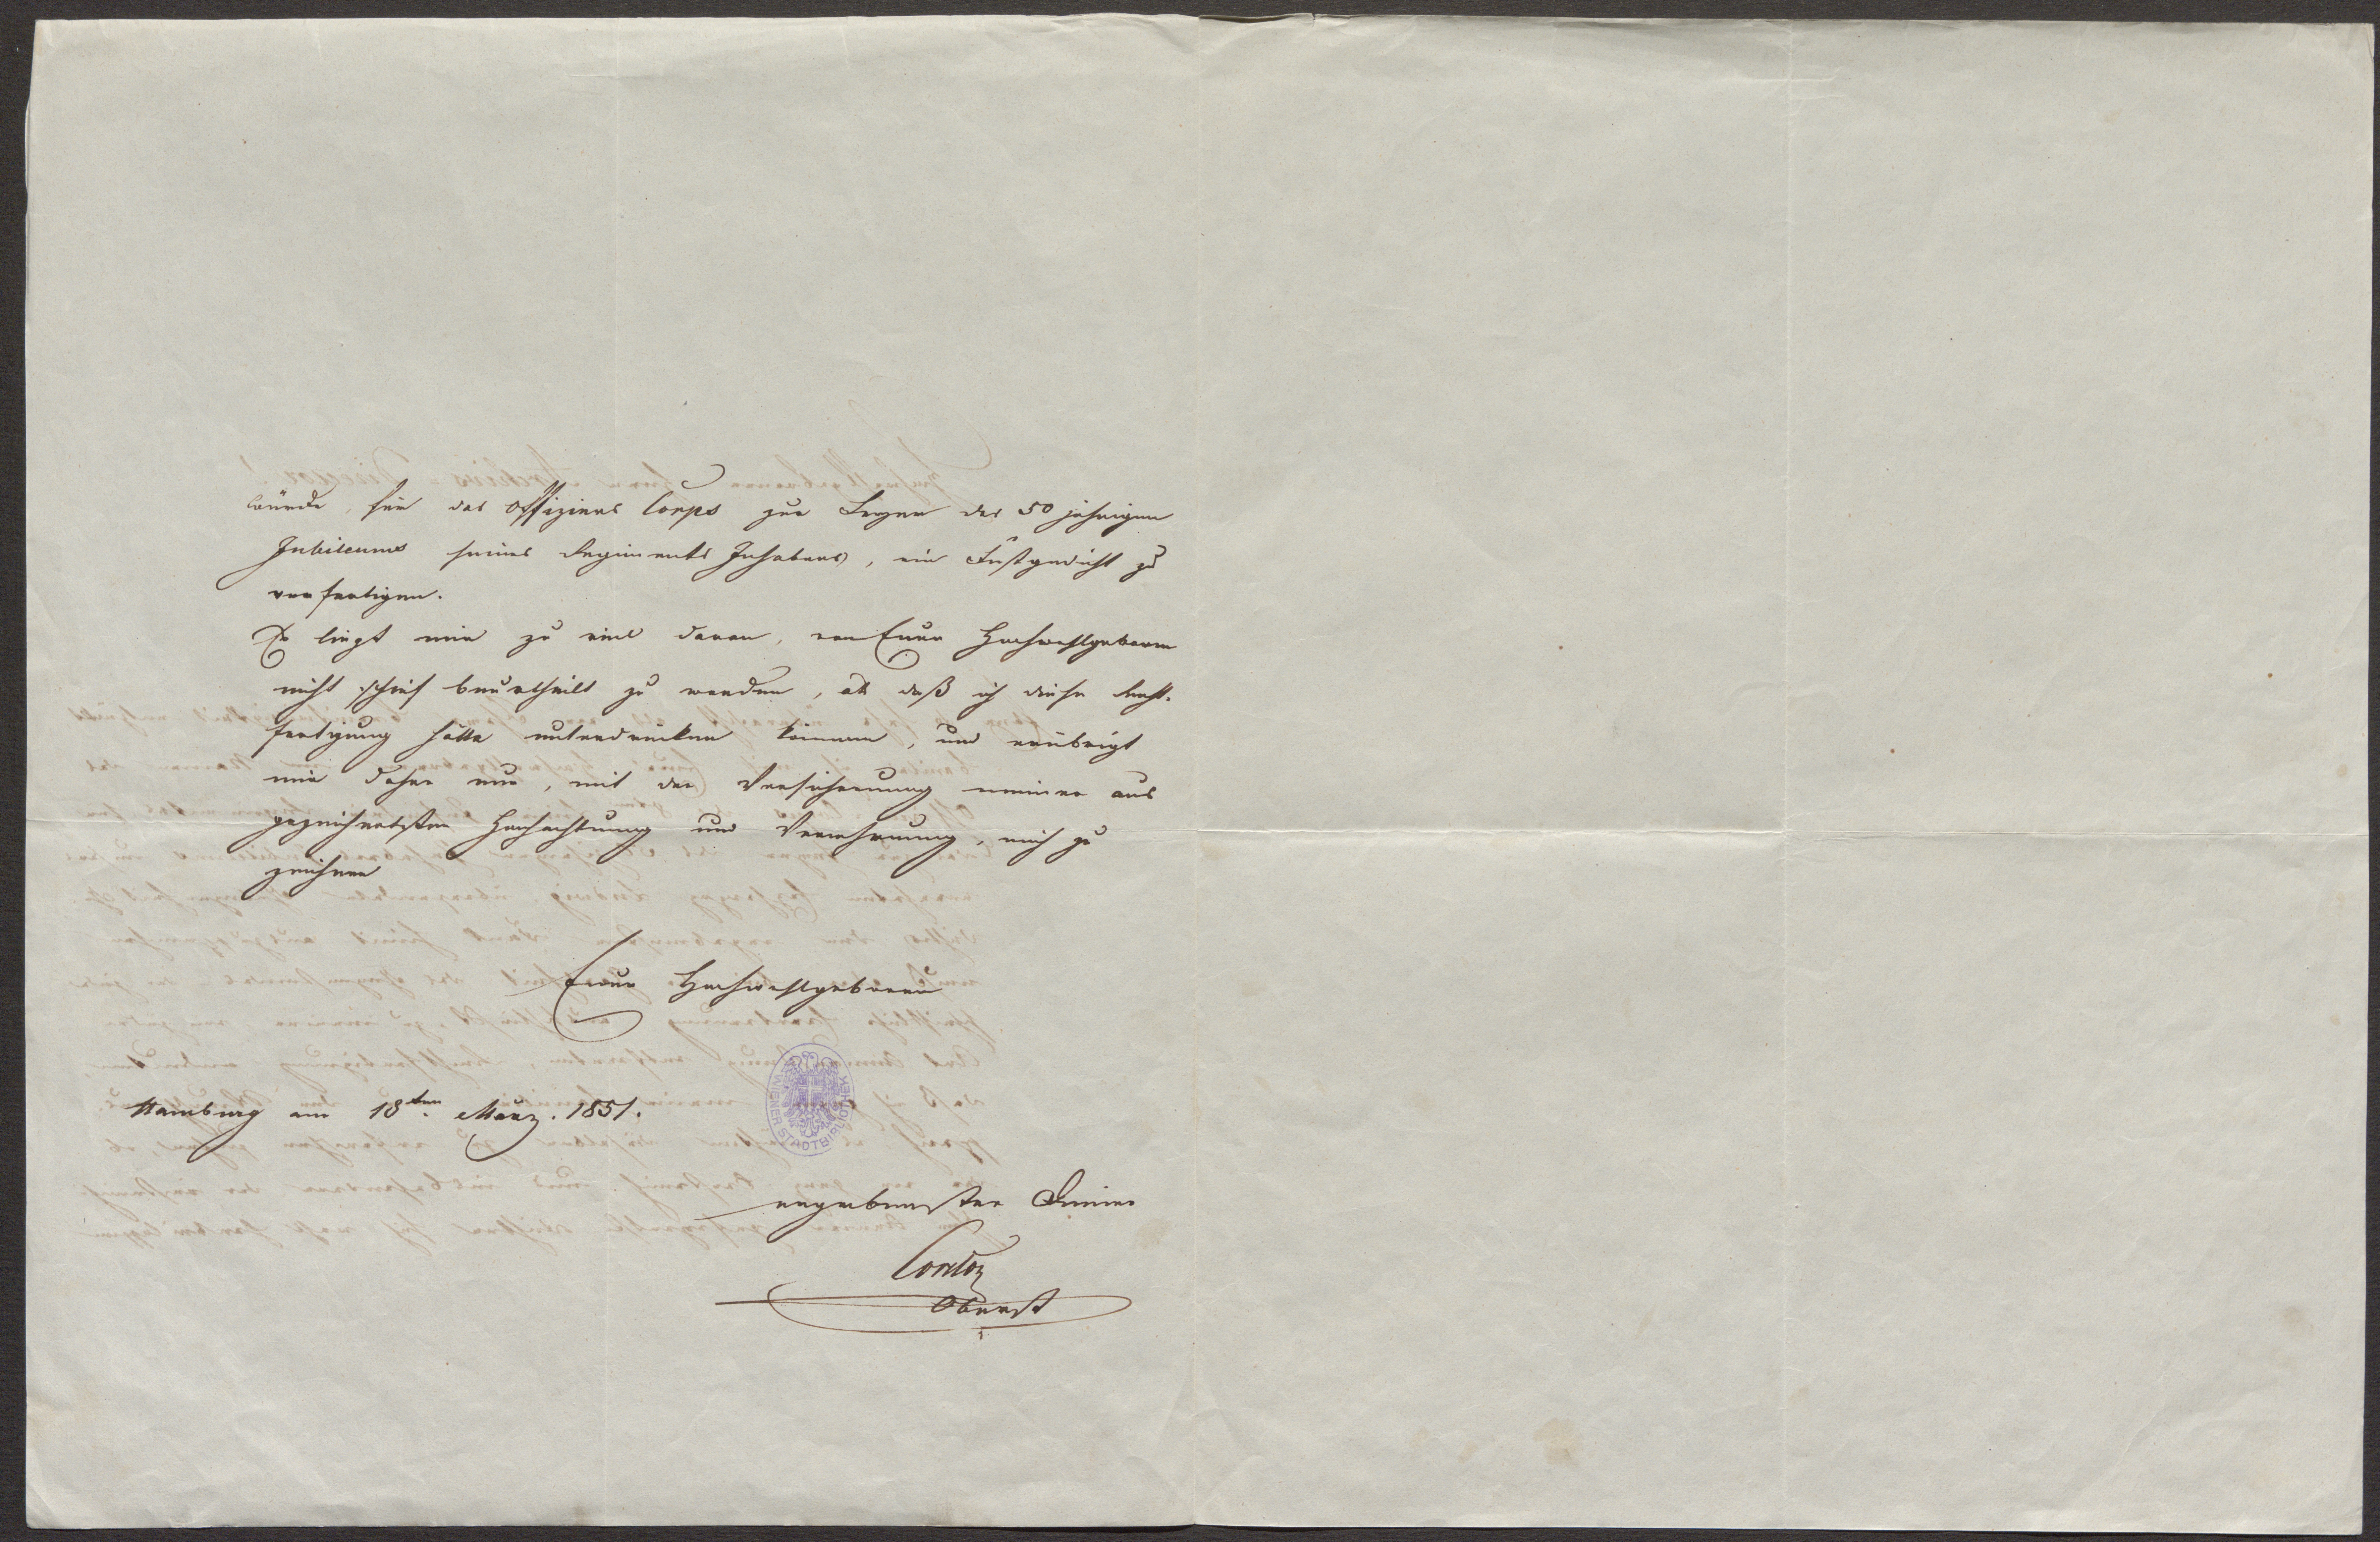 würde, für das Offiziers Corps zur Feyer des 50 jährigen
Jubileums seines Regiments Inhabers, ein Festgedicht zu
verfertigen.
Es liegt mir zu viel daran, von Euer Hochwohlgeboren
nicht schief beurtheilt zu werden, als daß ich diese Recht-
fertigung hätte unterdrücken können, und erübrigt
mir daher nur, mit der Versicherung meiner aus
gezeichnetsten Hochachtung und Verehrung, mich zu
zeichnen
Euer Hochwohlgeboren
WIENER STADTBIBLIOTHEK
Hamburg am 18ten März. 1851.
ergebenster Diener
Cordon
Oberst